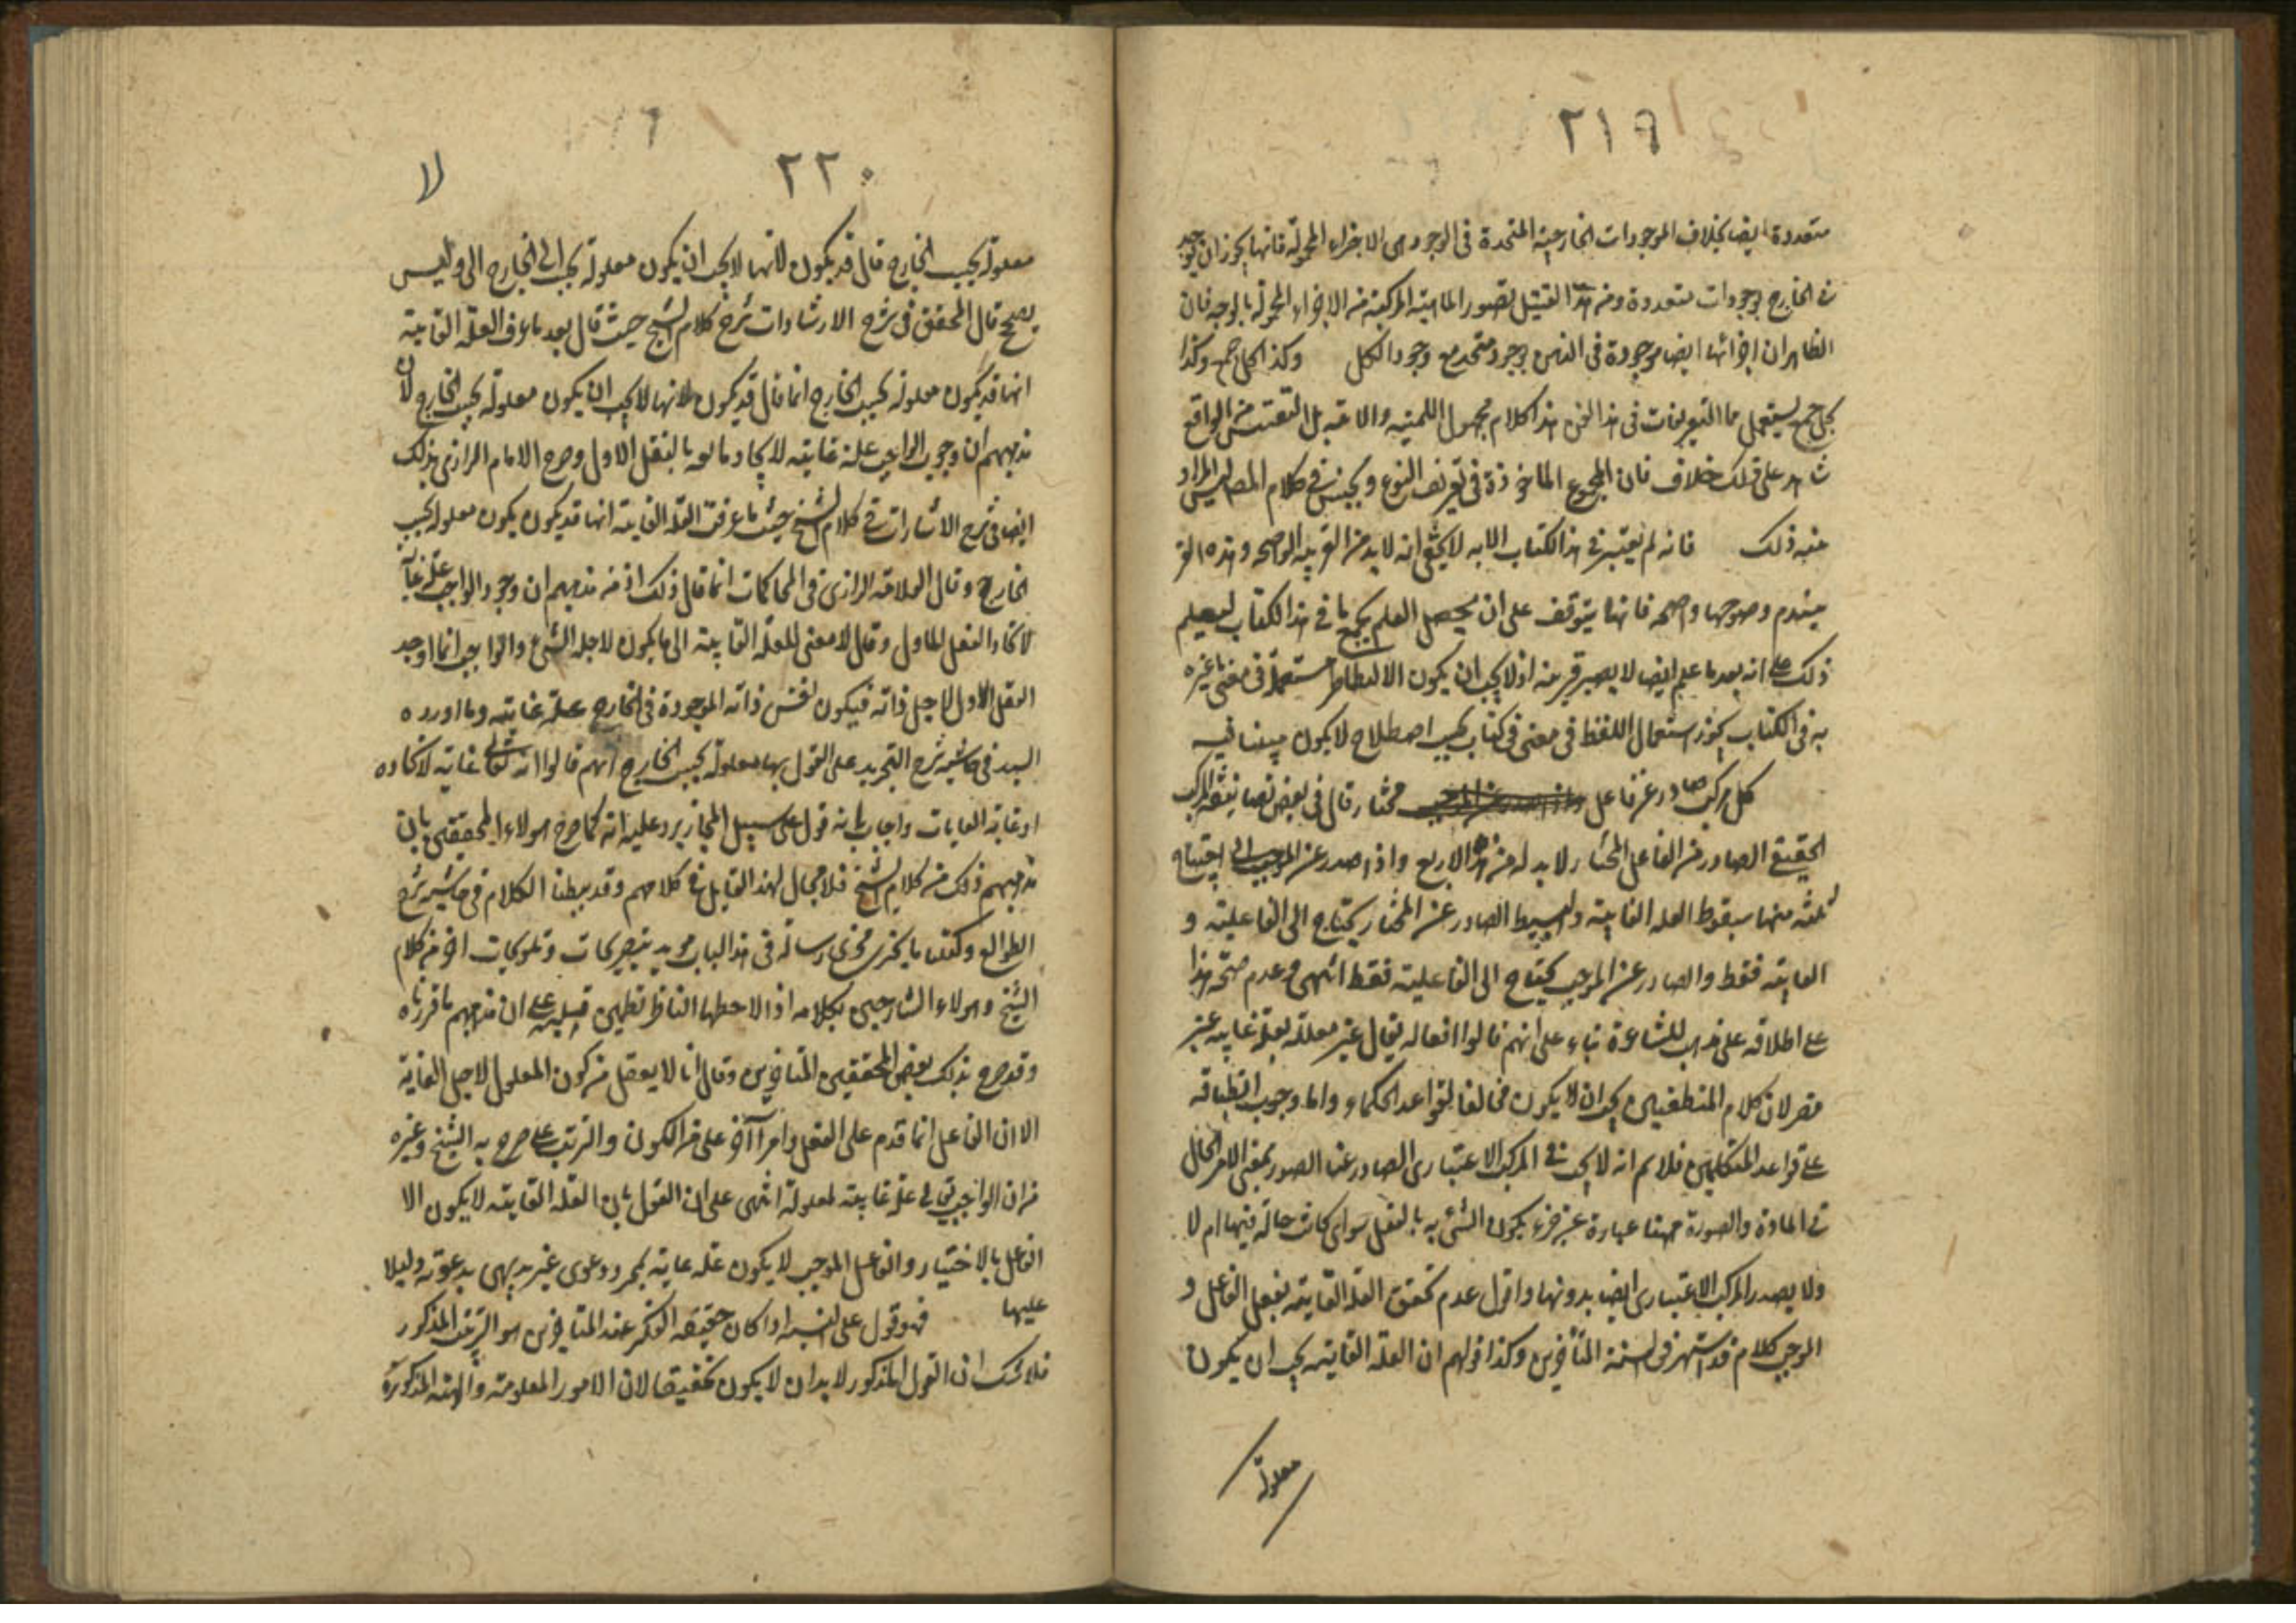 ٢١٩
متعددة ايضا بخلاف الموجودات الخارجية المتحدة فى الوجود هى الاجزاء المحمولة فانها يجوز ان يوجد
فى الخارج بوجودات متعددة ومن هذا القبيل تصور الماهية المركبة من الاجزاء المحمولة بالوجه فان
الظاهر ان اجزائها ايضا موجودة فى الذهن بوجود متحد مع وجود الكل وكذا
يستعمل ما التعريفات فى هذا الفن هذا كلام مجهول اللمية والانية بل من الواقع
شاهد على ذلك خلاف فان المجموع الماخوذة فى تعريف النوع والجنس فى كلام المص ليس المراد
منه ذلك فانه لم يعتبر فى هذا الكتاب الا به لا يخفى انه لا بد من القرينة الواضحة وهذه القر
ينة وضوحها واضحه فانها يتوقف على ان يحصل العلم بجميع ما فى هذا الكتاب ليعلم
ذلك على انه بعد ما علم ايضا لا يصير قرينة اذ لا يجب ان يكون الالفاظ مستعملة فى معنى ما غيره
به فى الكتاب يجوز استعمال اللفظ فى معنى فى كتاب بحسب اصطلاح لا يكون مبينا فيه
كل مركب صادر عن فاعل مختار قال فى بعض تصانيفه المركب
الحقيقى الصادر من الفاعل المختار لا بد له من هذه الاربع واذا صدر عن الموجب احتياج
ثلثه منها سقوط العله الغايية والبسيط الصادر عن المختار يحتاج الى الفاعلية و
الغاية فقط والصادر عن الموجب يحتاج الى الفاعلية فقط انتهى وعدم صحة هذا
على اطلاقه على مذهب الاشاعرة بناء على انهم قالوا افعاله تعالى غير معللة بعلة غايية غير
مضر لان كلام المنطقيين يجب ان لا يكون مخالفا لقواعد الحكماء واما وجوب انطباقه
على قواعد المتكلمين فلا ثم انه لا يجب فى المركب الاعتبارى الصادر عنا الصور بمعنى الامر الحال
فى المادة والصورة ههنا عبارة عن جزء يكون الشئ به بالفعل سواء كانت حالة فيها ام لا
ولا يصدر المركب الاعتبارى ايضا بدونها واقول عدم تحقق العلة الغايية بفعل الفاعل و
الموجب كلام قد اشتهر فى السنة المتأخرين وكذا قولهم ان العلة الغايية يجب ان يكون
معلولة
٢٢٠
لا
معلولة بحسب الخارج قال قد يكون لانها لا يجب ان يكون معلولة بحسب الخارج وليس
بصحيح قال المحقق فى شرح الاشارات شرح كلام الشيخ حيث قال بعد ما عرف العلة الغايية
انها قد يكون معلولة بحسب الخارج انما قال قد يكون لانها لا يجب ان يكون معلولة بحسب الخارج لان
مذهبهم ان وجوب الواجب علة غايية لايجاده العقل الاول وصرح الامام الرازى بذلك
ايضا فى شرح الاشارات فى كلام الشيخ حيث ما عرفت العلة الغايية انها قد يكون يكون معلولة بحسب
الخارج وقال العلامة الرازى فى المحاكمات انما قال ذلك اذ من مذهبهم ان وجود الواجب علة غايية
لايجاد العقل الاول وقال لا معنى للعلة الغايية الا ما يكون لاجله الشئ والواجب انما اوجد
العقل الاول لاجل ذاته فيكون نفس ذاته الموجودة فى الخارج علة غايية وما اورده
السيد فى حاشية شرح التجريد على القول بها معلولة بحسب الخارج انهم قالوا انه تعالى غاية لايجاده
او غاية الغايات واجاب بانه قول على سبيل المجاز يرد عليه انه كما صرح هؤلاء المحققين بان
مذهبهم ذلك من كلام الشيخ فلا مجال لهذا القايل فى كلامهم وقد بسطنا الكلام فى حاشية شرح
الطوالع وكتبنا رسالة فى هذا الباب مويد بتصريحات وتلويحات اخر من كلام
الشيخ وهؤلاء الشارحين لكلامه اذا لاحظها الناظر تطمئن قلبه على ان مذهبهم ما قررناه
وقد صرح بذلك بعض المحققين المتاخرين وقال انا لا يعقل من كون المعلول لاجل الغاية
الا ان الفاعل انما قدم على الفعل وامرا آخر على من الكون والترتب على ما صرح به الشيخ وغيره
من ان الواجب تعالى علة غايية لمعلولة انتهى على ان القول بان العلة الغايية لا يكون الا
الفاعل بالاختيار والفاعل الموجب لا يكون علة غاية بمجرد دعوى غير بديهى يدعونه دليلا
عليها فهو قول على اذا كان حقيقة الفكر عند المتاخرين هو الترتيب المذكور
فلا شك ان القول المذكور لا بد ان لا يكون تحقيقا لان الامور المعلومة والهيئة المذكورة